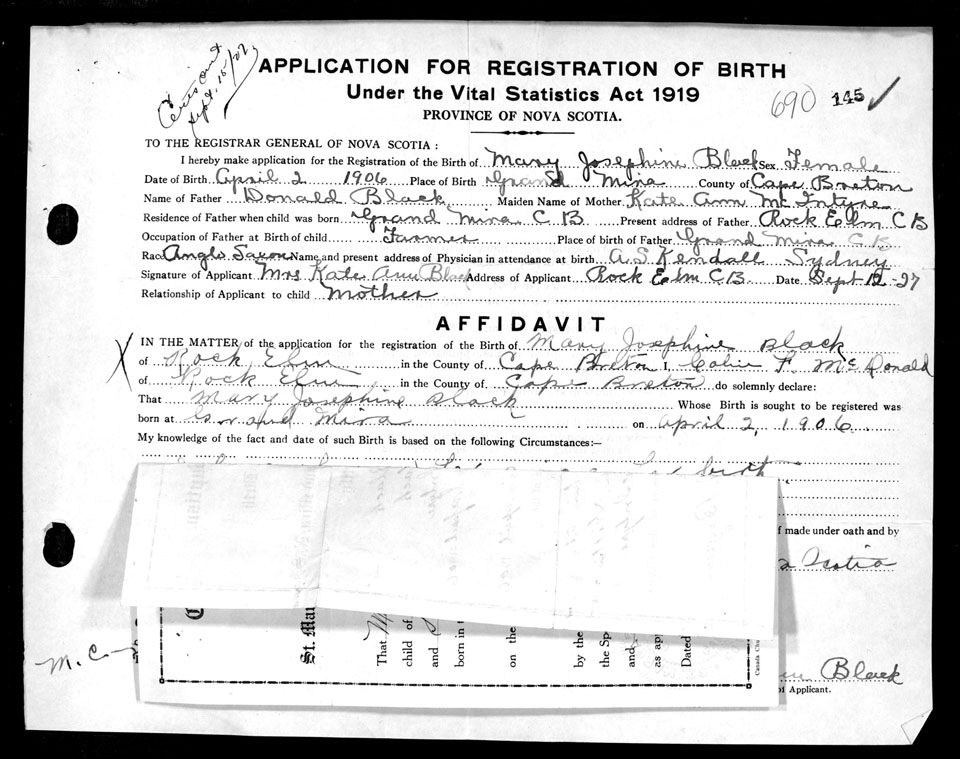 Sept. 15/27
APPLICATION FOR REGISTRATION OF BIRTH
Under the Vital Statistics Act 1919
690 145
PROVINCE OF NOVA SCOTIA.
TO THE REGISTRAR GENERAL OF NOVA SCOTIA :
I hereby make application for the Registration of the Birth of Mary Josephine Black Sex Female
Date of Birth April 2 1906 Place of Birth Grand Mira County of Cape Breton
Name of Father Donald Black Maiden Name of Mother Kate Ann McIntyre
Residence of Father when child was born Grand Mira C B Present address of Father Rock Eelm C B
Occupation of Father at Birth of child Farmer Place of birth of Father Grand Mira C B
Race Anglo Saxon Name and present address of Physician in attendance at birth A. S. Kendall Sydney
Signature of Applicant Mrs Kate Ann Black Address of Applicant Rock Eelm CB. Date Sept 12-27
Relationship of Applicant to child Mother
AFFIDAVIT
X IN THE MATTER of the application for the registration of the Birth of Mary Josephine Black
of Rock Elm in the County of Cape Breton I, F. McDonald
of Rock Elm in the County of Cape Breton do solemnly declare:
That Mary Josephine Black Whose Birth is sought to be registered was
born at Grand Mira on April 2, 1906.
My knowledge of the fact and date of such Birth is based on the following Circumstances:—
birth
made under oath and by
Scotia
St. Mar
That
child of
and
born in t
on the
by the
the Sp
and
as app
Dated
Canada Ch
M. C.
Black
of Applicant.